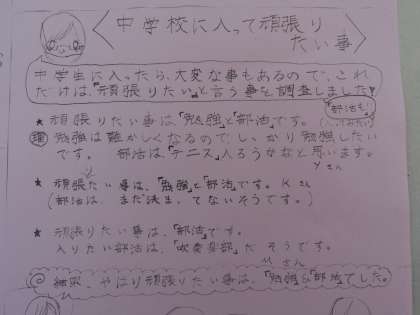 中学校に入って頑張り
たい事
中学生に入ったら、大変な事もあるので、これ
だけは、「頑張りたい」と言う事を調査しました!
★ 頑張りたい事は、「勉強」と「部活」です。
「部活も!
理 勉強は難かしくなるので、しっかり勉強したい
です。 部活は、「テニス」入ろうかなと思います。
Yさん
★ 頑張たい事は、「勉強」と「部活」です。 Kさん
(部活は、まだ決まってないそうです。)
★ 頑張りたい事は、「部活」です。
入りたい部活は、「吹奏楽部」だそうです。
Mさん
結果、やはり頑張りたい事は、「勉強」&「部活」でした。